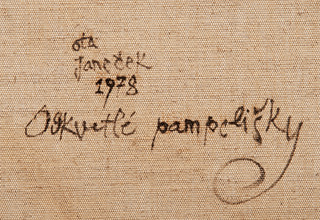 ota
Janeček
1978
Odkvetlé pampelišky